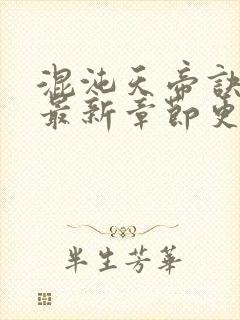 混沌天帝訣
最新章節更
半生芳華